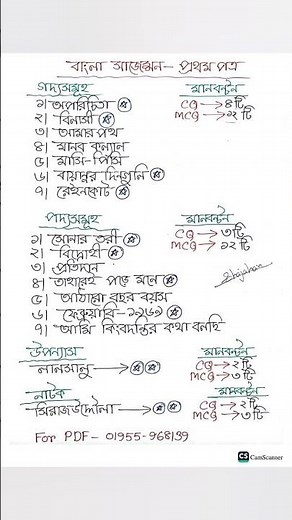 বাংলা সাজেশন- প্রথম পত্র
গদ্যসমূহ
মানবন্টন
১। অপরিচিতা ☆
CQ → ৪টি
২। বিলাসী ☆
MCQ → ১২ টি
৩। আমার পথ
৪। মানব কল্যান
৫। মাসি-পিসি
৬। বায়ান্নর দিনগুলি ☆
৭। রেইনকোট ☆
পদ্যসমূহ
মানবন্টন
১। সোনার তরী ☆
CQ → ৩টি
২। বিদ্রোহী ☆
MCQ → ১২ টি
৩। প্রতিদান
৪। তাহারেই পড়ে মনে ☆
Shajahan
৫। আঠারো বছর বয়স
৬। ফেব্রুয়ারি-১৯৬৯ ☆
৭। আমি কিংবদন্তির কথা বলছি
উপন্যাস
মানবন্টন
লালসালু → ☆☆
CQ → ২ টি
MCQ → ৩ টি
নাটক
মানবন্টন
সিরাজউদ্দৌলা → ☆☆
CQ → ২টি
MCQ → ৩ টি
For PDF- 01955-968139
CS CamScanner